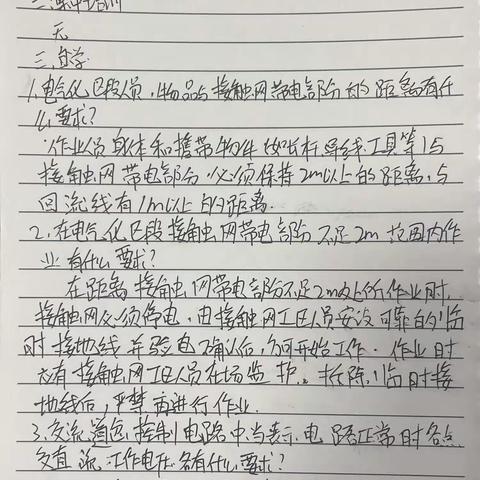 二、集中培训
无
三、自学
1.电气化区段人员,物品与接触网带电部分的距离有什
么要求?
作业人员身体和携带物件(如长杆、导线、工具等)与
接触网带电部分必须保持2m以上的距离,与
回流线有1m以上的距离.
2.在电气化区段接触网带电部分不足2m范围内作
业有什么要求?
在距离接触网带电部分不足2m处所作业时,
接触网必须停电,由接触网工区人员安设可靠的临
时接地线并验电确认后,方可开始工作.作业时
应有接触网工区人员在场监护。拆除临时接
地线后,严禁再进行作业.
3.交流道岔控制电路中,当表示电路正常时各点
交直流工作电压各有什么要求?